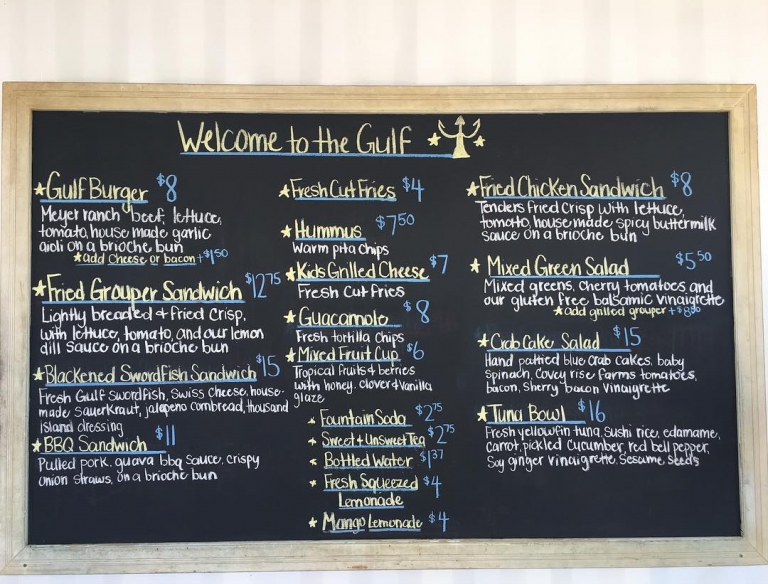 Welcome to the Gulf
Gulf Burger $8
Meyer ranch beef, lettuce,
tomato, house made garlic
aioli on a brioche bun
add Cheese or bacon +$1.50
Fried Grouper Sandwich $12.75
Lightly breaded & fried crisp,
with lettuce, tomato, and our lemon
dill sauce on a brioche bun
Blackened Swordfish Sandwich $15
Fresh Gulf Swordfish, Swiss Cheese, house-
made sauerkraut, jalapeno cornbread, thousand
island dressing
BBQ Sandwich $11
Pulled pork, guava bbq sauce, crispy
onion straws, on a brioche bun
Fresh Cut Fries $4
Hummus $7.50
Warm pita chips
Kids Grilled Cheese $7
Fresh Cut Fries
Guacamole $8
Fresh tortilla chips
Mixed Fruit Cup $6
Tropical fruits & berries
with honey, clover & vanilla
glaze
Fountain Soda $2.75
Sweet & Unsweet Tea $2.75
Bottled Water $1.37
Fresh Squeezed $4
Lemonade
Mango Lemonade $4
Fried Chicken Sandwich $8
Tenders fried crisp with lettuce,
tomatto, house made spicy buttermilk
sauce on a brioche bun
Mixed Green Salad $5.50
Mixed greens, cherry tomatoes and
our gluten free balsamic vinaigrette
add grilled grouper +$8.50
Crab Cake Salad $15
Hand pattied blue crab cakes, baby
spinach, Covey rise Farms tomatoes,
bacon, Sherry bacon vinaigrette
Tuna Bowl $16
Fresh yellowfin tuna, sushi rice, edamame,
carrot, pickled cucumber, red bell pepper,
Soy ginger vinaigrette, sesame seeds